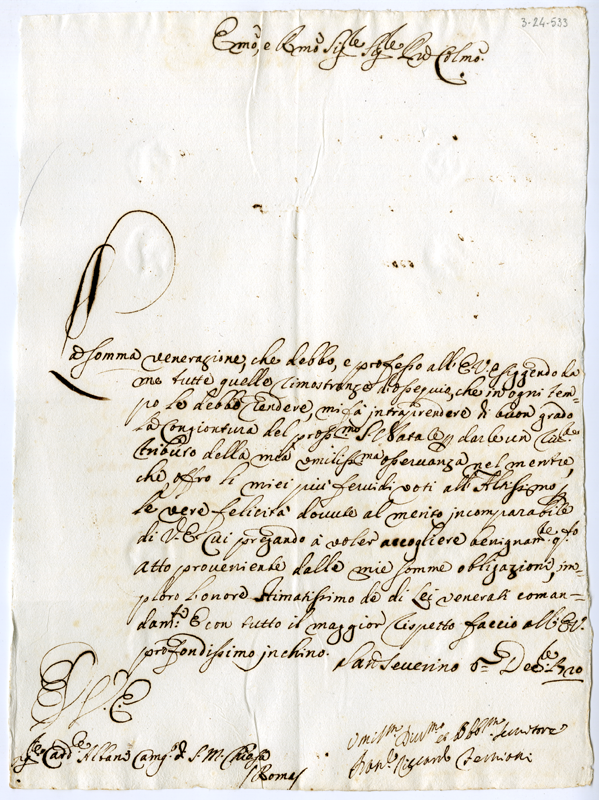 3-24-533
Emo, e Rmo Sigre Sigre Pro Colmo
La somma venerazione, che debbo, e professo all'E.V. esiggendo da
me tutte quelle dimostranze d'ossequio, che in ogni tem=
po le debbo rendere, mi fà intraprendere di buon grado
la congiontura del prossmo S. Natale p darle un
tributo della mia umilissma osservanza nel mentre,
che offro li miei più fervidi voti all'Altissimo p
le vere felicità dovute al merito incomparabile
di V.E. cui pregando à voler accogliere benignamte qsto
atto proveniente dalle mie somme obligazioni, im=
ploro l'onore stimatissimo de di Lei venerati coman=
damti. E con tutto il maggior rispetto faccio all'E.V.
profondissimo inchino.
San Severino 6 Decre 1720
D. V. E.
Sigr Card. Albano Camgo di S. M. Chiesa
Roma
Umilmo Devmo et Obblmo Servitore